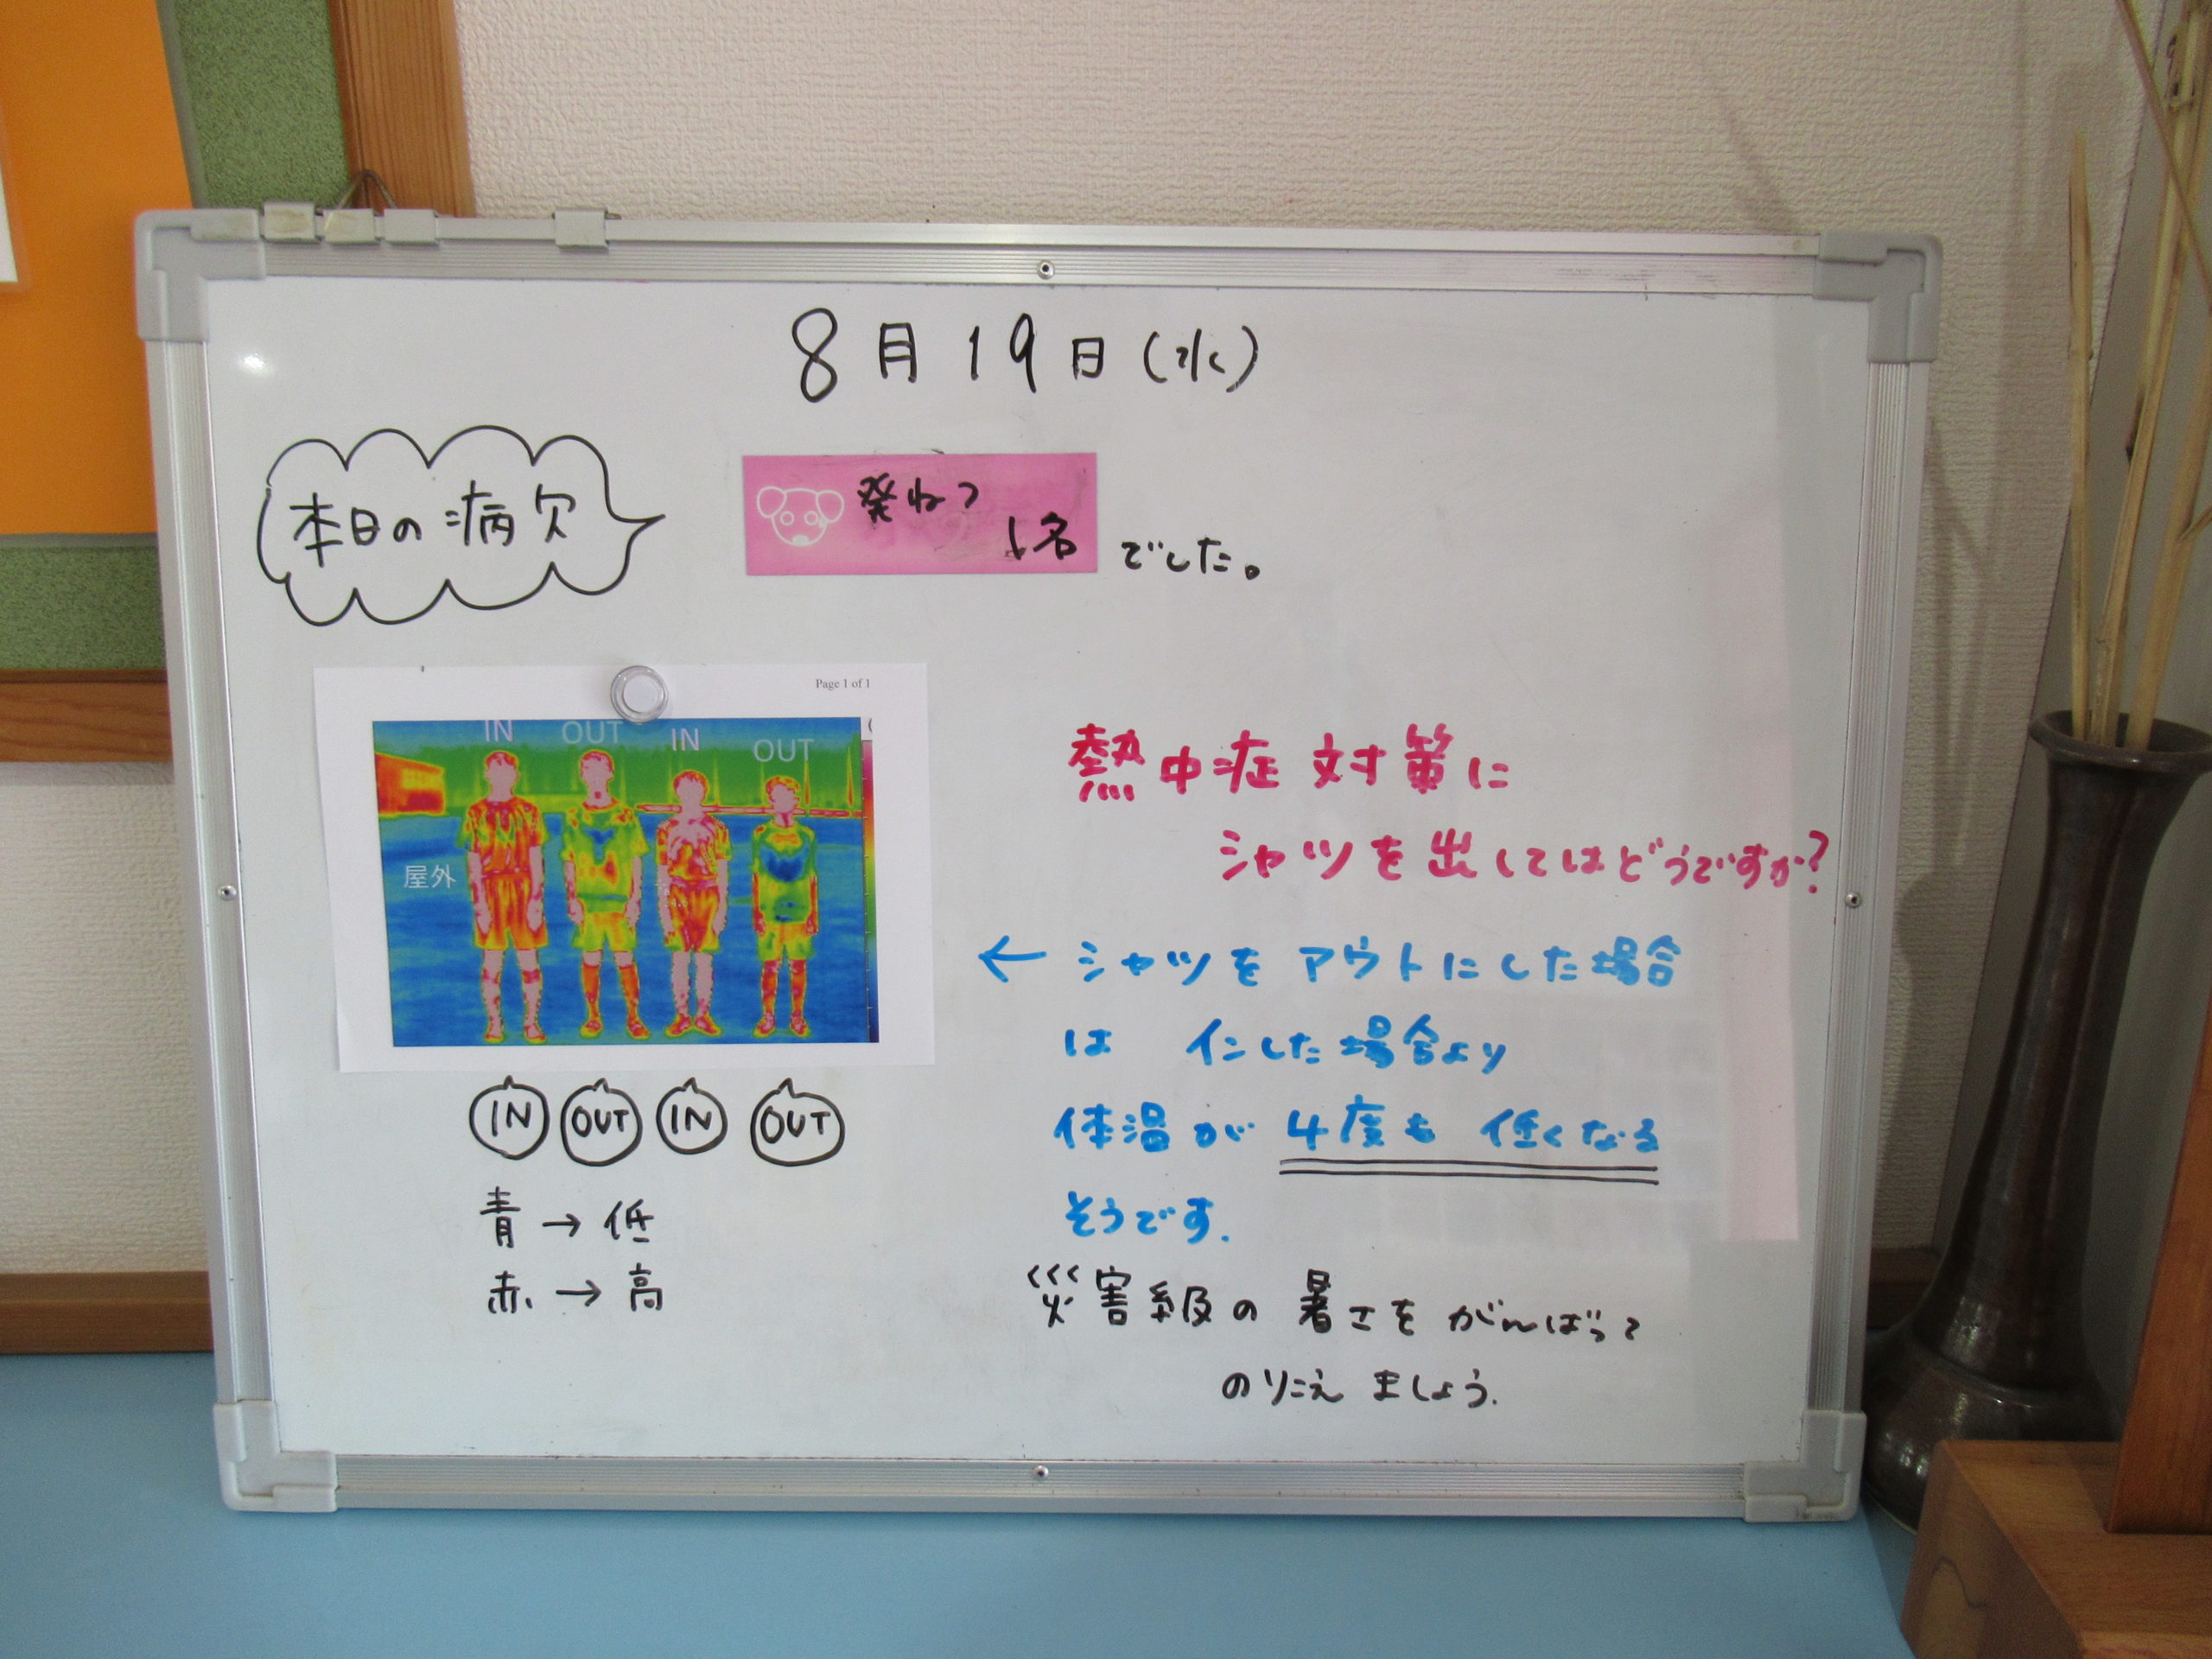 8月19日(水)
本日の病欠
発ねつ
1名
でした。
Page 1 of 1
IN OUT IN OUT
屋外
IN OUT IN OUT
青→低
赤→高
熱中症対策に
シャツを出してはどうですか?
← シャツをアウトにした場合
は インした場合より
体温が 4度も 低くなる
そうです.
災害級の暑さをがんばって
のりこえましょう.